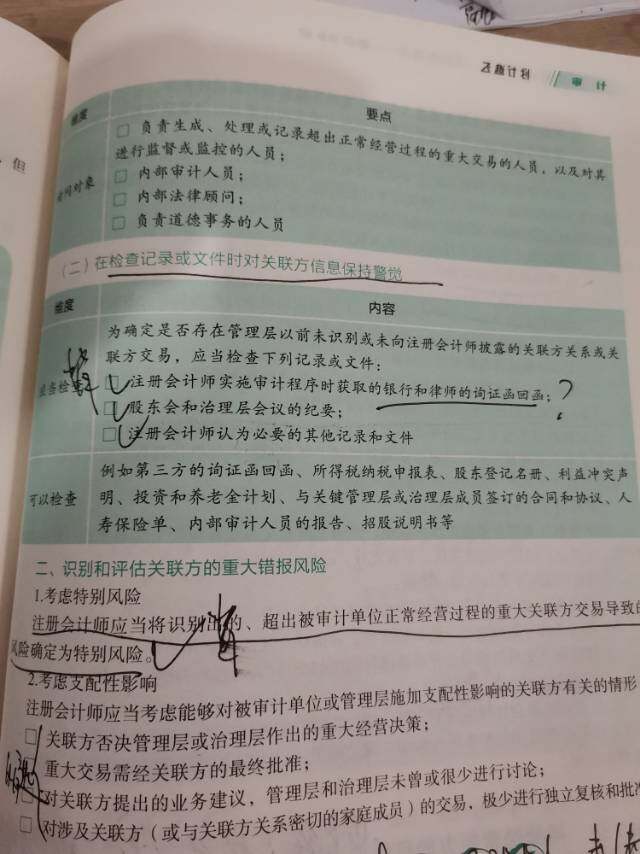 但
飞越计划 // 审计
维度 要点
□ 负责生成、处理或记录超出正常经营过程的重大交易的人员，以及对其
进行监督或监控的人员；
□ 内部审计人员；
询问对象
□ 内部法律顾问；
□ 负责道德事务的人员
（二）在检查记录或文件时对关联方信息保持警觉
维度 内容
为确定是否存在管理层以前未识别或未向注册会计师披露的关联方关系或关
联方交易，应当检查下列记录或文件：
□ 注册会计师实施审计程序时获取的银行和律师的询证函回函；？
□ 股东会和治理层会议的纪要；
□ 注册会计师认为必要的其他记录和文件
例如第三方的询证函回函、所得税纳税申报表、股东登记名册、利益冲突声
可以检查 明、投资和养老金计划、与关键管理层或治理层成员签订的合同和协议、人
寿保险单、内部审计人员的报告、招股说明书等
二、识别和评估关联方的重大错报风险
1.考虑特别风险
注册会计师应当将识别出的、超出被审计单位正常经营过程的重大关联方交易导致的
风险确定为特别风险。
2.考虑支配性影响
注册会计师应当考虑能够对被审计单位或管理层施加支配性影响的关联方有关的情形
□ 关联方否决管理层或治理层作出的重大经营决策；
重大交易需经关联方的最终批准；
□ 对关联方提出的业务建议，管理层和治理层未曾或很少进行讨论；
□ 对涉及关联方（或与关联方关系密切的家庭成员）的交易，极少进行独立复核和批准